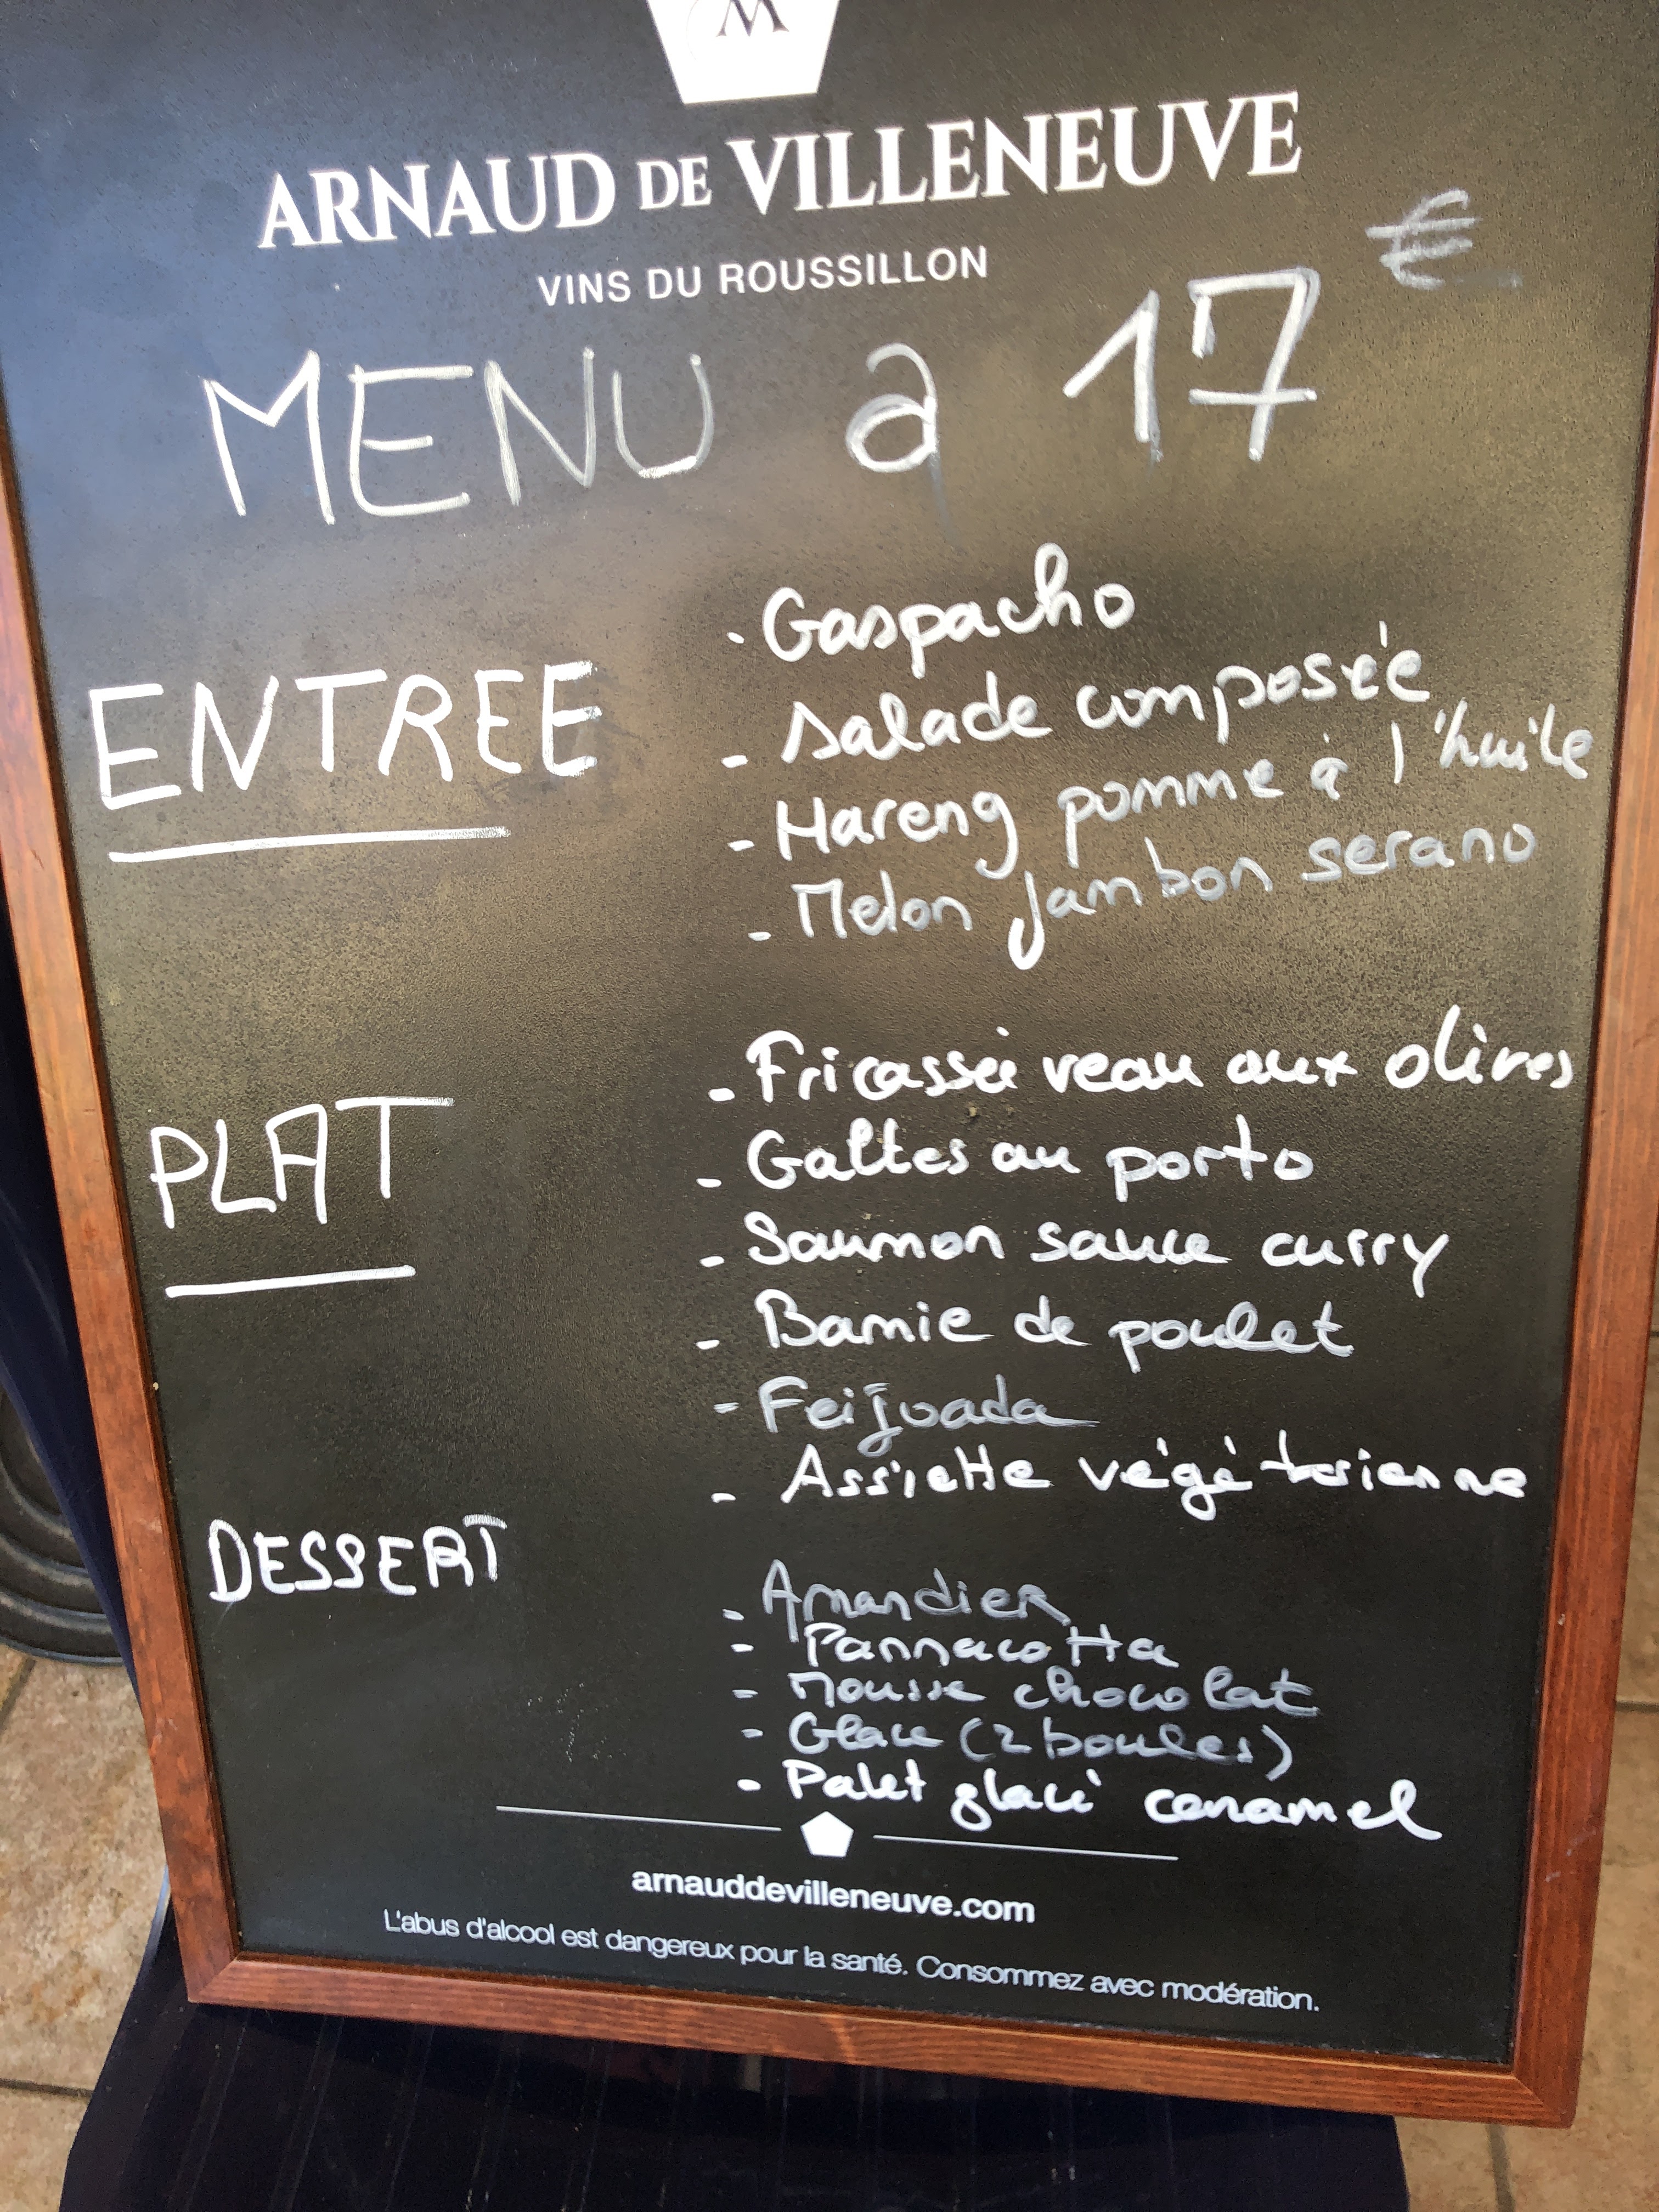 M
ARNAUD DE VILLENEUVE
VINS DU ROUSSILLON
MENU à 17 €
ENTREE
- Gaspacho
- Salade composée
- Hareng pomme à l'huile
- Melon Jambon serano
PLAT
- Fricassée veau aux olives
- Galtes au porto
- Saumon sauce curry
- Bamie de poulet
- Feijoada
- Assiette végétarienne
DESSERT
- Amandier
- Pannacotta
- Mousse chocolat
- Glace (2 boules)
- Palet glacé caramel
arnauddevilleneuve.com
L'abus d'alcool est dangereux pour la santé. Consommez avec modération.